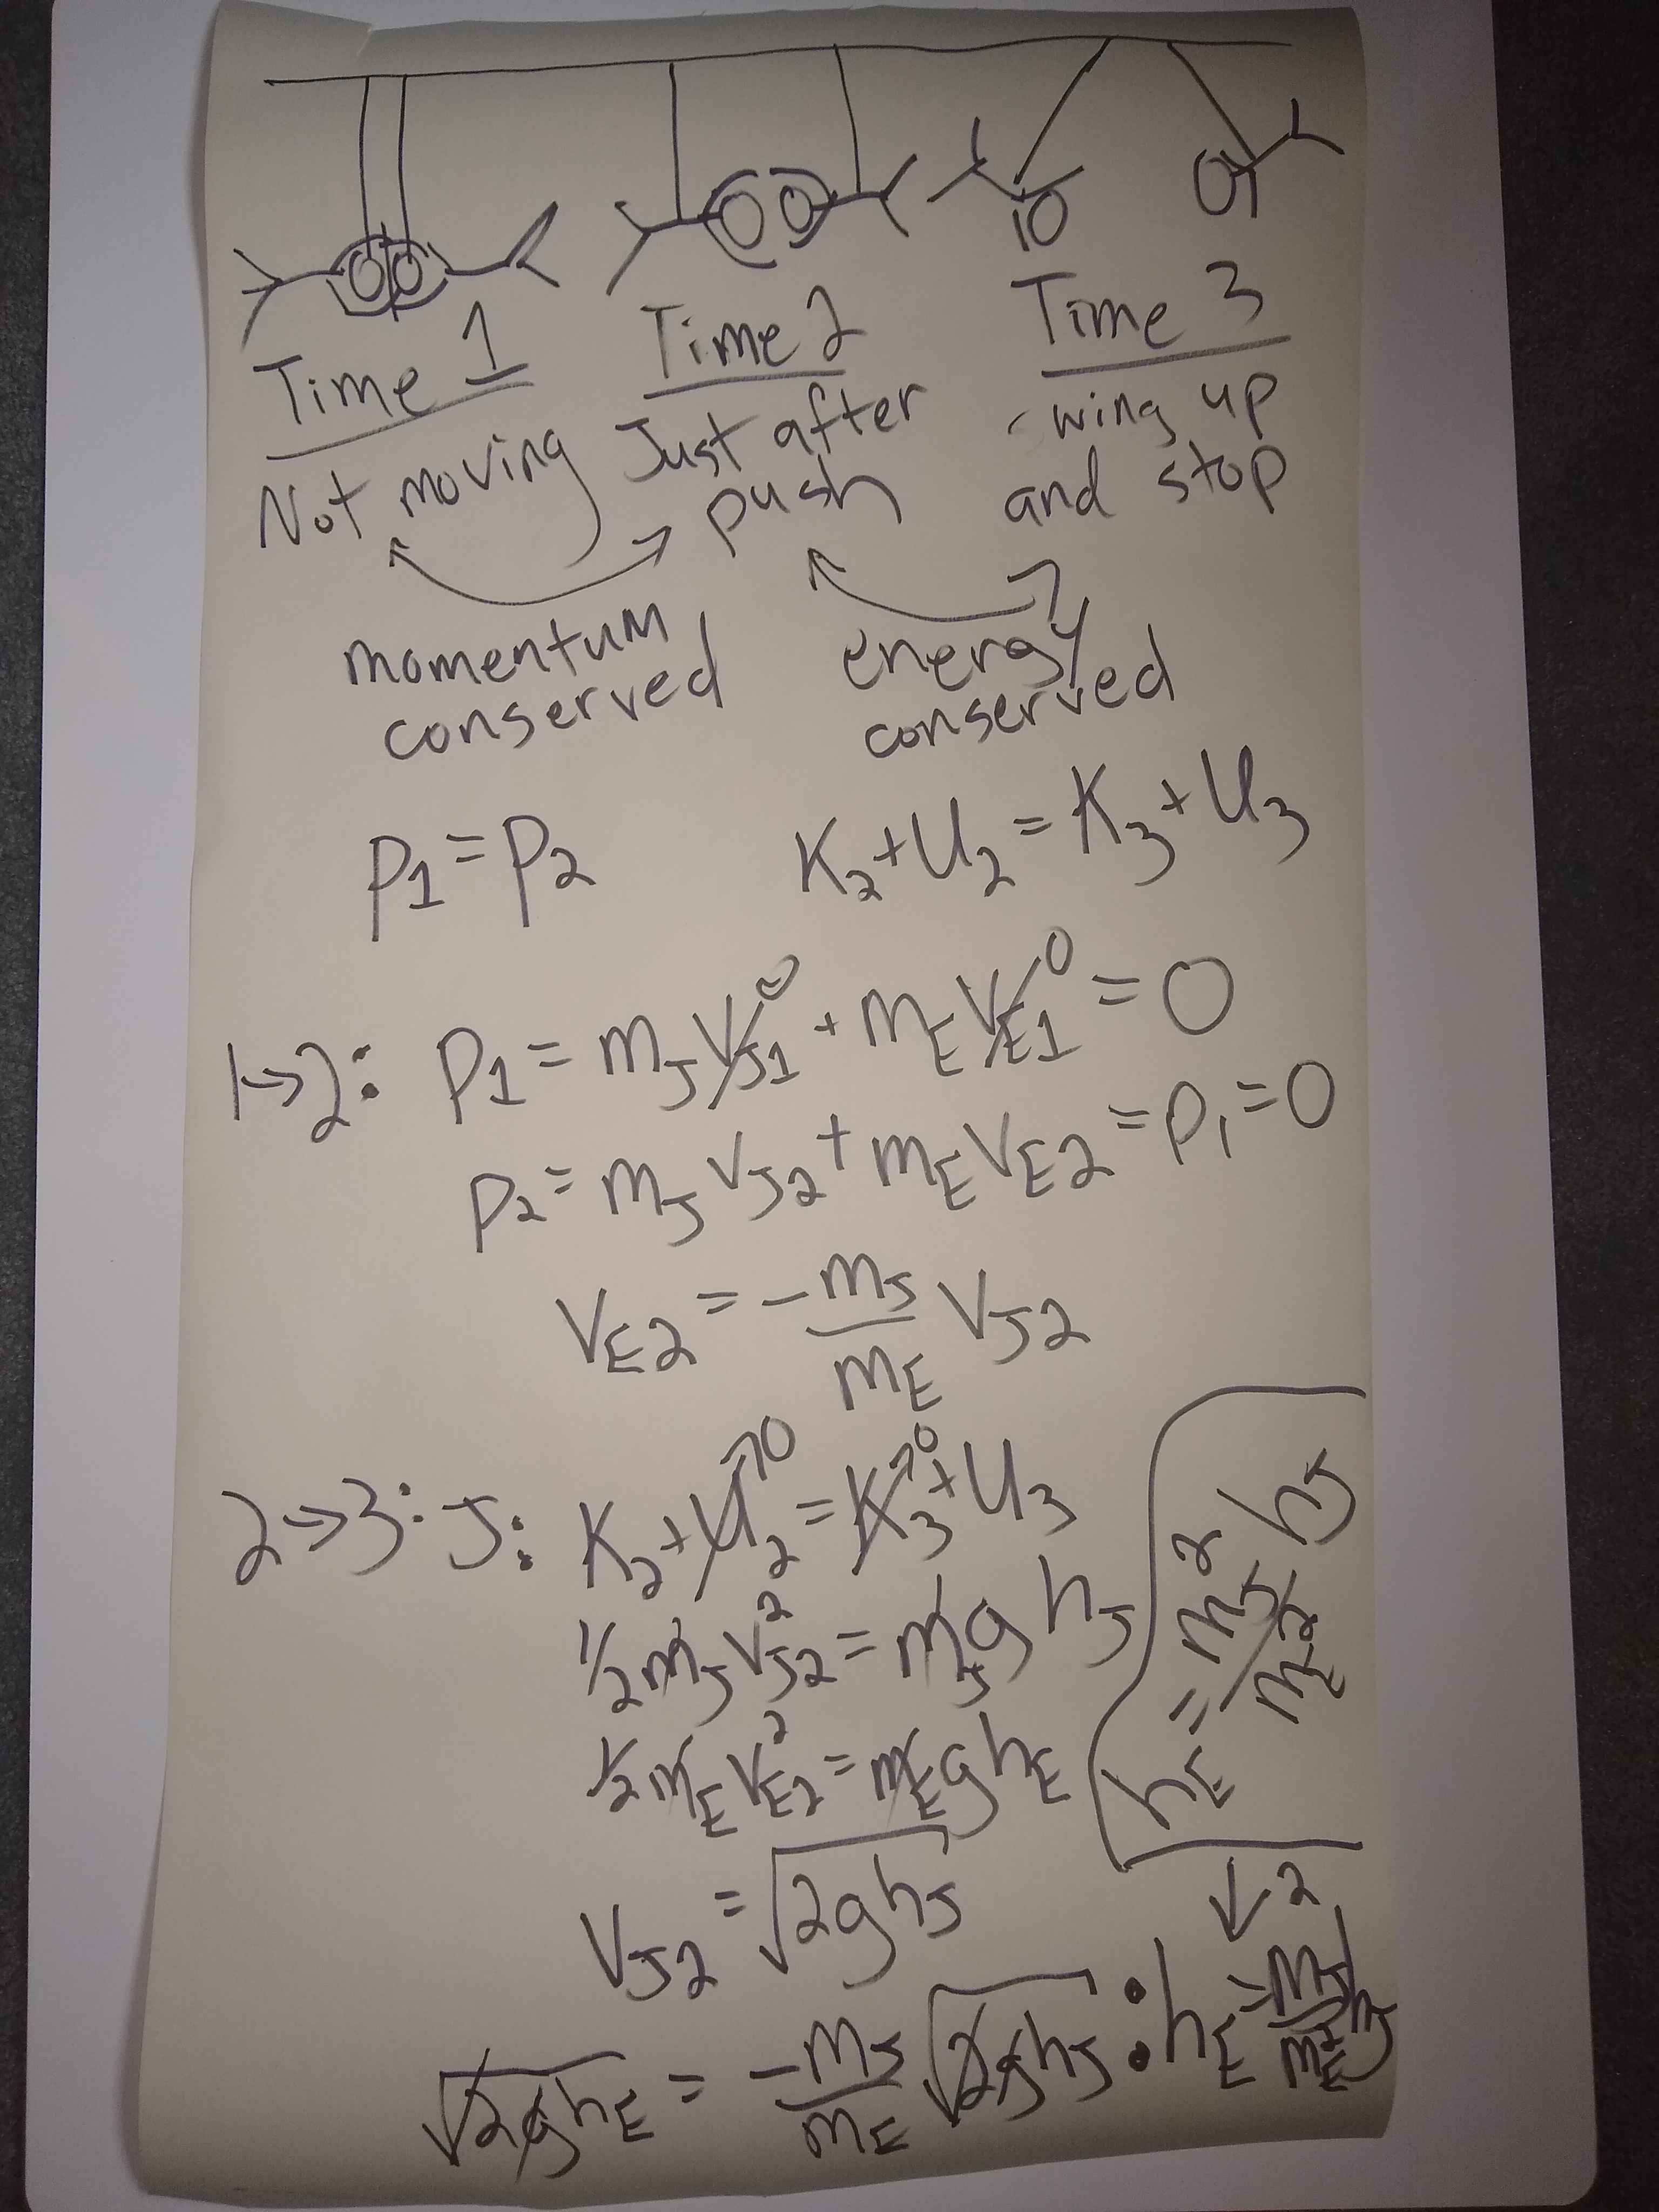 Time 1 Time 2 Time 3
Not moving Just after push swing up and stop
momentum conserved energy conserved
P1 = P2 K2 + U2 = K3 + U3
1→2: P1 = mJ vJ1 0 + mE vE1 0 = 0
P2 = mJ vJ2 + mE vE2 = P1 = 0
vE2 = -mJ/mE vJ2
2→3: J: K2 + U2 →0 = K3 →0 + U3
1/2 mJ vJ2² = mJ g hJ
1/2 mE vE2² = mE g hE
vJ2 = √2ghJ
√2ghE = -mJ/mE √2ghJ : hE = mJ²/mE² hJ
hE = mJ²/mE² hJ